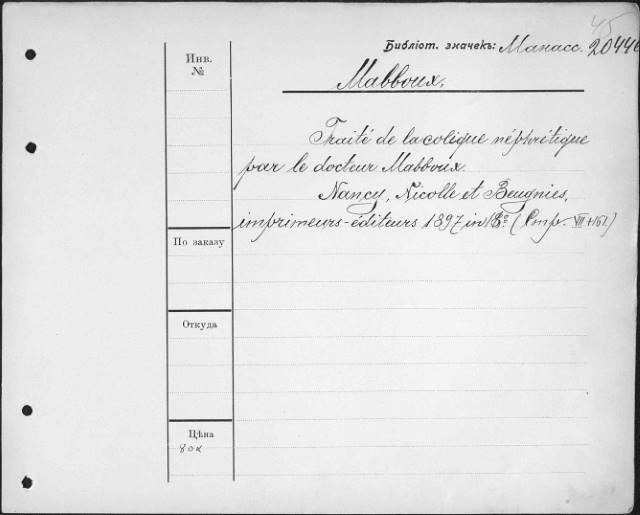 45
Библіот. значекъ: Манасс. 20446
Инв.
№
Mabboux,
Traité de la colique néphrétique
par le docteur Mabboux.
Nancy, Nicolle et Beugnies,
imprimeurs-éditeurs 1897 in 18º (Стр. VII+161)
По заказу
Откуда
Цѣна
80к